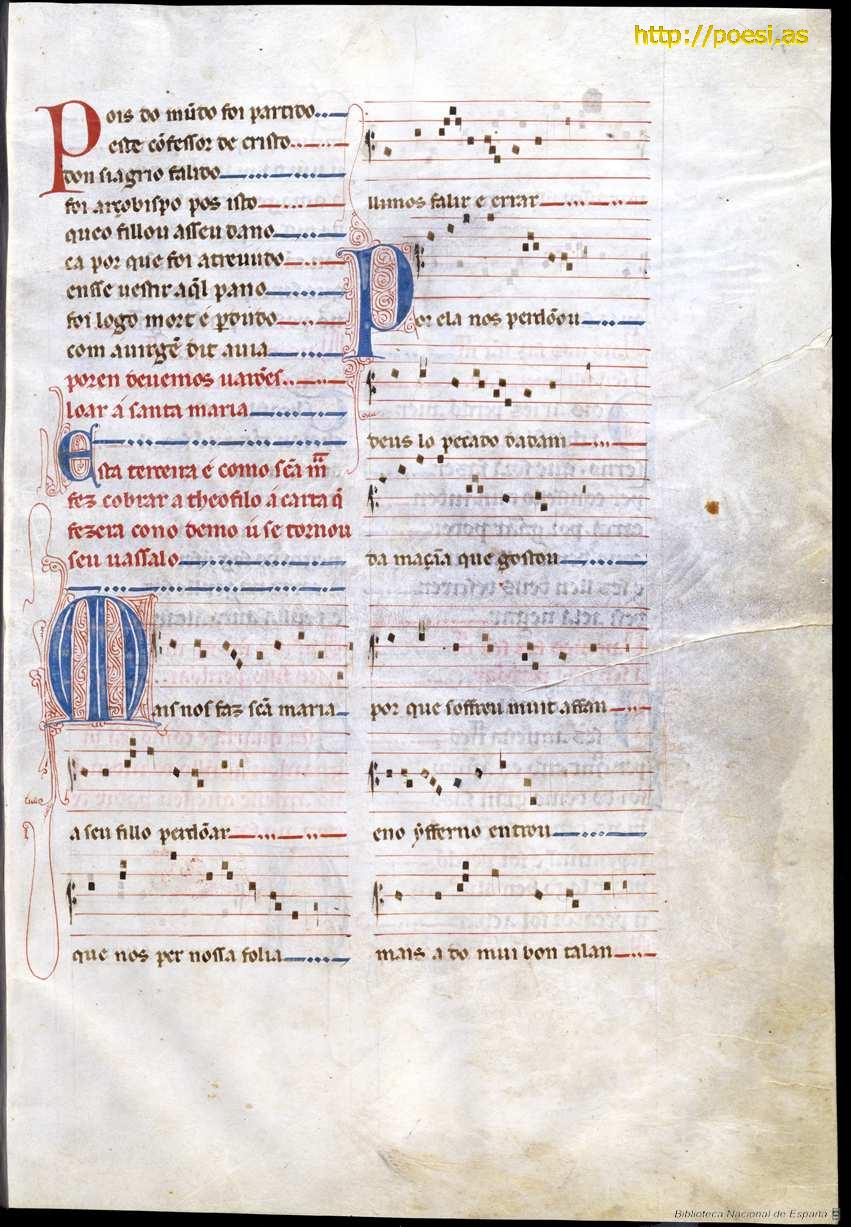 http://poesi.as
Pois do mũdo foi partido
este cõfessor de cristo
don siagrio falido
foi arçobispo pos isto
queo fillou asseu dano
ca por que foi atreuudo
ensse uestir aq̃l pano
foi logo mort e p̲dudo
com auirgẽ dit auia
poren deuemos uarões
loar a santa maria
Esta terceira é como sc̃a m̃
fez cobrar a theofilo a carta q̃
fezera cono demo u se tornou
seu uassalo
Mais nos faz sc̃a maria
a seu fillo perdõar
que nos per nossa folia
llimos falir e errar
Por ela nos perdõou
deus lo pecado dadam
da maçãa que gostou
por que soffreu muit affan
eno yfferno entrou
mais a do mui bon talan
Biblioteca Nacional de España